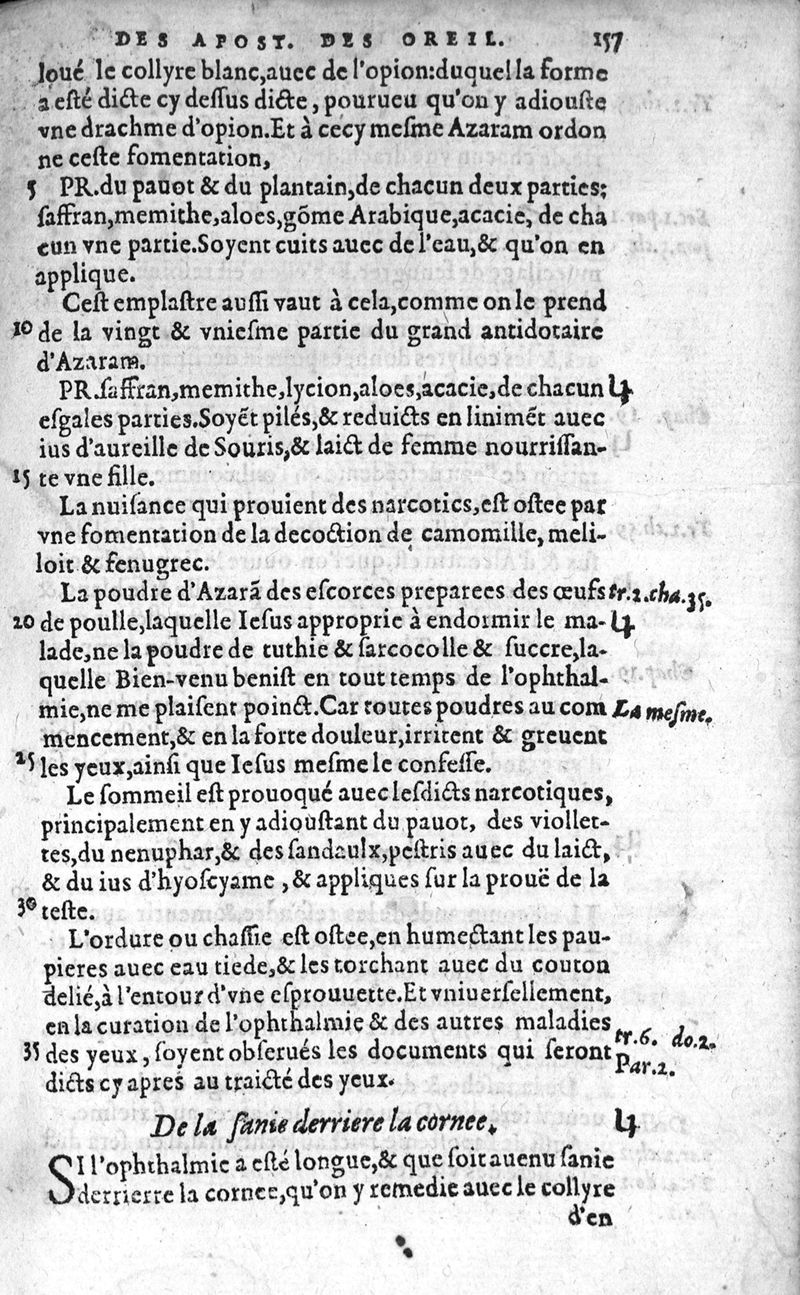 DES APOST. DES OREIL. 157
loué le collyre blanc,auec de l'opion:duquel la forme
a esté dicte cy deſſus dicte, pourueu qu'on y adiouſte
vne drachme d'opion.Et à cecy meſme Azaram ordon
ne ceſte fomentation,
5 PR.du pauot & du plantain,de chacun deux parties;
ſaffran,memithe,aloes,gõme Arabique,acacie, de cha
cun vne partie.Soyent cuits auec de l'eau,& qu'on en
applique.
Ceſt emplaſtre auſſi vaut à cela,comme on le prend
10 de la vingt & vnieſme partie du grand antidotaire
d'Azaram.
PR.ſaffran,memithe,lycion,aloes,acacie,de chacun
eſgales parties.Soyẽt pilés,& reduicts en linimẽt auec
ius d'aureille de Souris,& laict de femme nourriſſan-
15 te vne fille.
La nuiſance qui prouient des narcotics,eſt oſtee par
vne fomentation de la decoction de camomille, meli-
loit & fenugrec.
La poudre d'Azarã des eſcorces preparees des œufs tr.2.cha.35.
20 de poulle,laquelle Ieſus approprie à endormir le ma-
lade,ne la poudre de tuthie & ſarcocolle & ſuccre,la-
quelle Bien-venu beniſt en tout temps de l'ophthal-
mie,ne me plaiſent poinct.Car toutes poudres au com La meſme.
mencement,& en la forte douleur,irritent & greuent
25 les yeux,ainſi que Ieſus meſme le confeſſe.
Le ſommeil eſt prouoqué auec leſdicts narcotiques,
principalement en y adiouſtant du pauot, des viollet-
tes,du nenuphar,& des ſandaulx,peſtris auec du laict,
& du ius d'hyoſcyame ,& appliques ſur la prouë de la
30 teſte.
L'ordure ou chaſſie eſt oſtee,en humectant les pau-
pieres auec eau tiede,& les torchant auec du couton
delié,à l'entour d'vne eſprouuette.Et vniuerſellement,
en la curation de l'ophthalmie & des autres maladies tr.6. do.2.
35 des yeux, ſoyent obſerués les documents qui ſeront Par.2.
dicts cy apres au traicté des yeux.
De la ſanie derriere la cornee.
SI l'ophthalmie a eſté longue,& que ſoit auenu ſanie
derrierre la cornee,qu'on y remedie auec le collyre
d'en